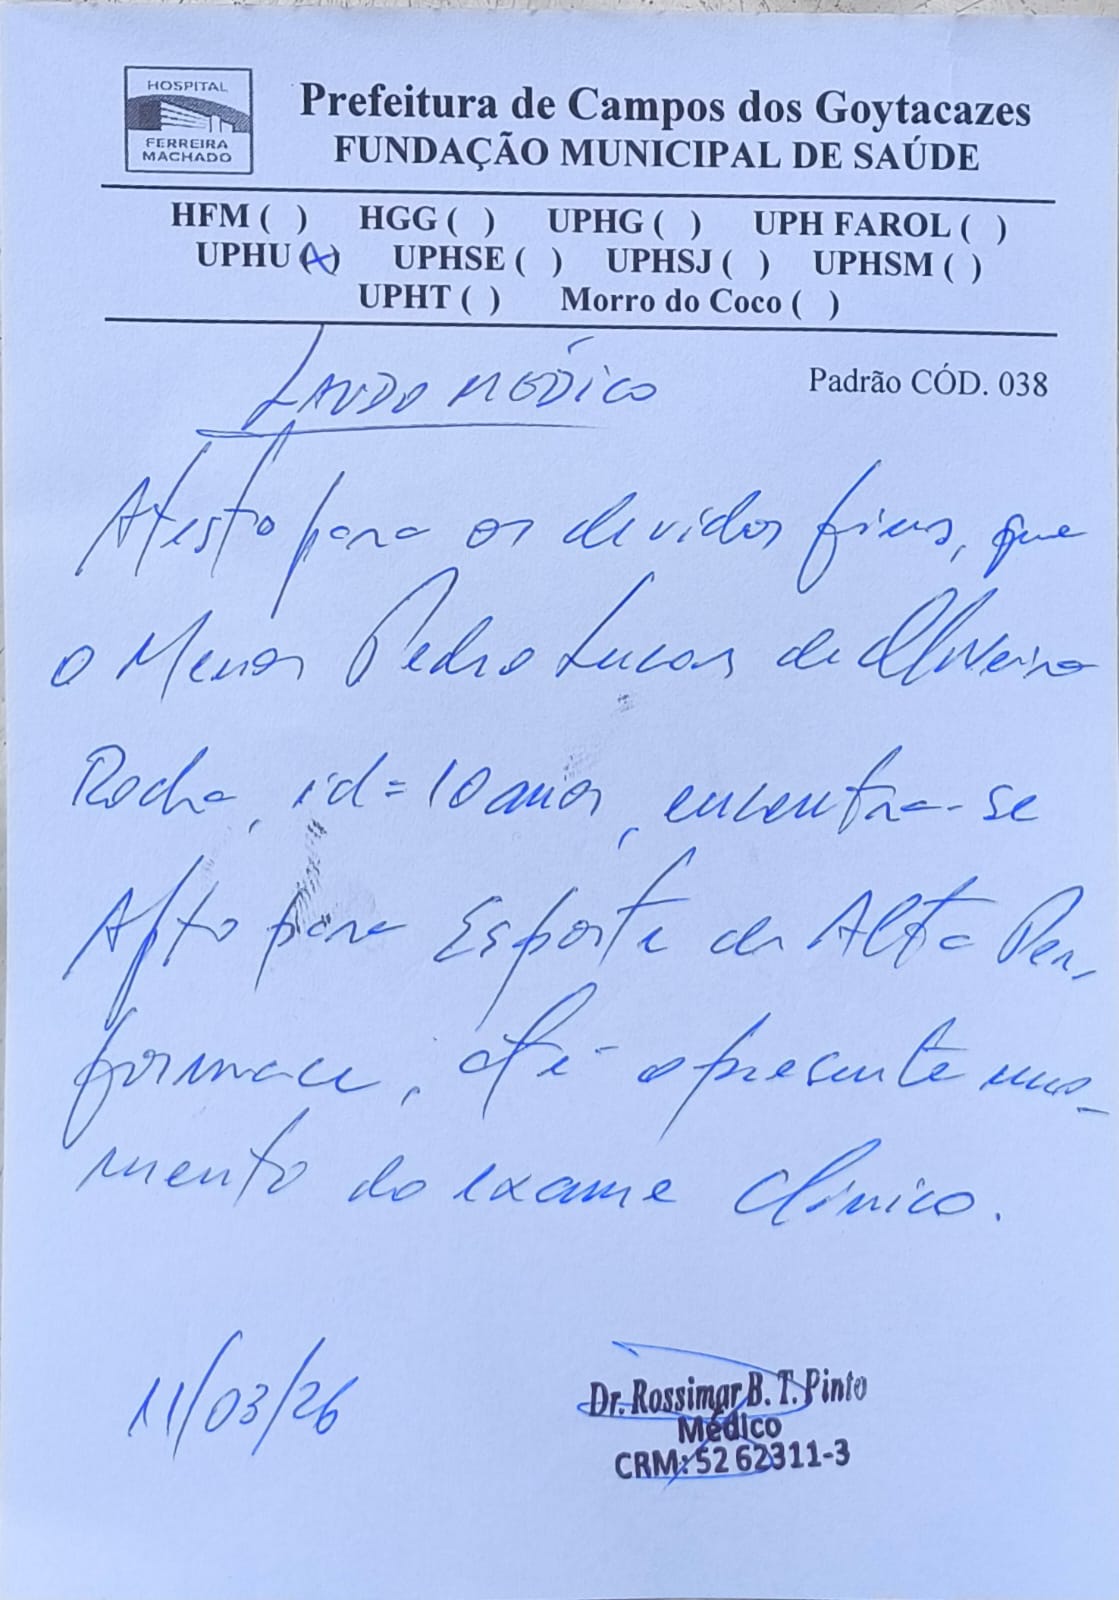 HOSPITAL
FERREIRA
MACHADO
Prefeitura de Campos dos Goytacazes
FUNDAÇÃO MUNICIPAL DE SAÚDE
HFM ( ) HGG ( ) UPHG ( ) UPH FAROL ( )
UPHU (X) UPHSE ( ) UPHSJ ( ) UPHSM ( )
UPHT ( ) Morro do Coco ( )
LAUDO MÉDICO
Padrão CÓD. 038
Atesto para os devidos fins, que
o Menor Pedro Lucas de Oliveira
Rocha, id=10 anos, encontra-se
Apto para Esporte de Alta Per-
formace, até o presente mo-
mento do exame clínico.
11/03/26
Dr. Rossimar B. T. Pinto
Médico
CRM: 52 62311-3